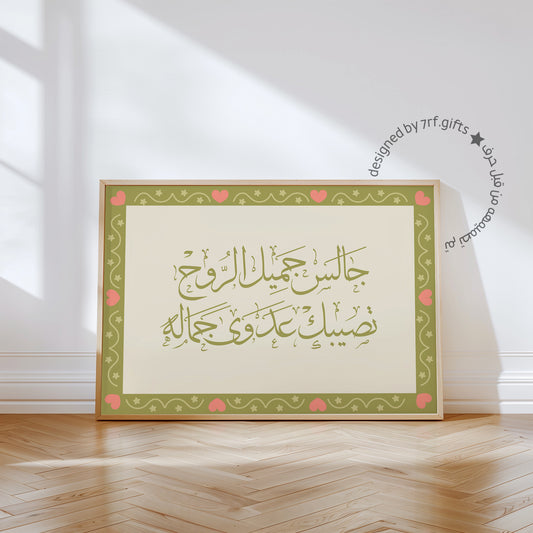 جَالِسْ جَمِيلَ الرُّوحْ
تصيبك عَدْوَى جَمَاله
designed by 7rf.gifts ★ تم تصميمه من قبل حرف